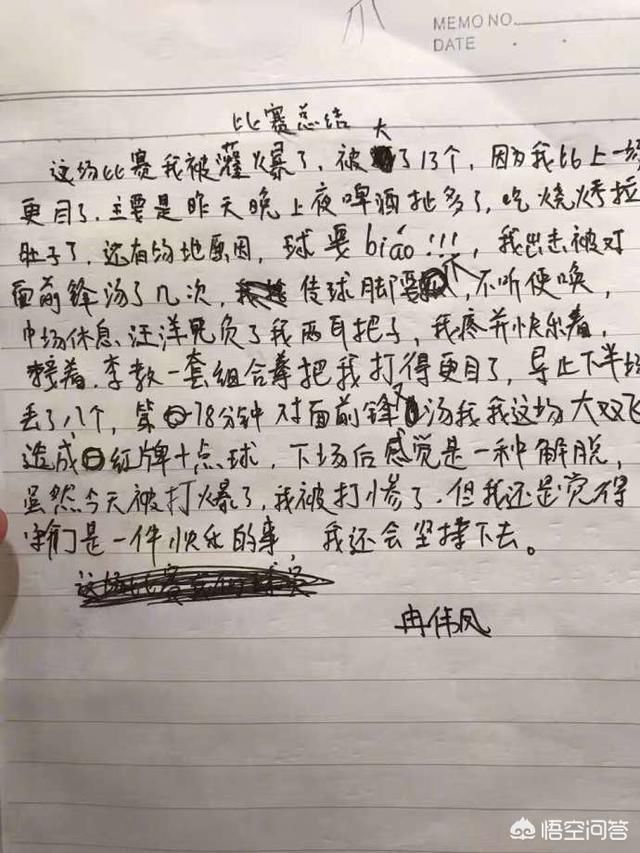 MEMO NO.
DATE
比赛总结
这场比赛我被灌爆了，被大了13个，因为我比上一场
更目了，主要是昨天晚上夜啤酒扯多了，吃烧烤拉
肚子了，还有场地原因，球要biáo!!!，我出击被对
面前锋汤了几次，传球脚爪，不听使唤，
中场休息、汪洋兄负了我两耳把子，我疼并快乐着，
接着，李教一套组合拳把我打得更目了，导止下半场
丢了八个，第78分钟对面前锋又汤我我这场大双飞
造成红牌+点球，下场后感觉是一种解脱，
虽然今天被打爆了，我被打惨了，但我还是觉得
守门是一件快乐的事，我还会坚持下去。
冉伟凤
悟空问答